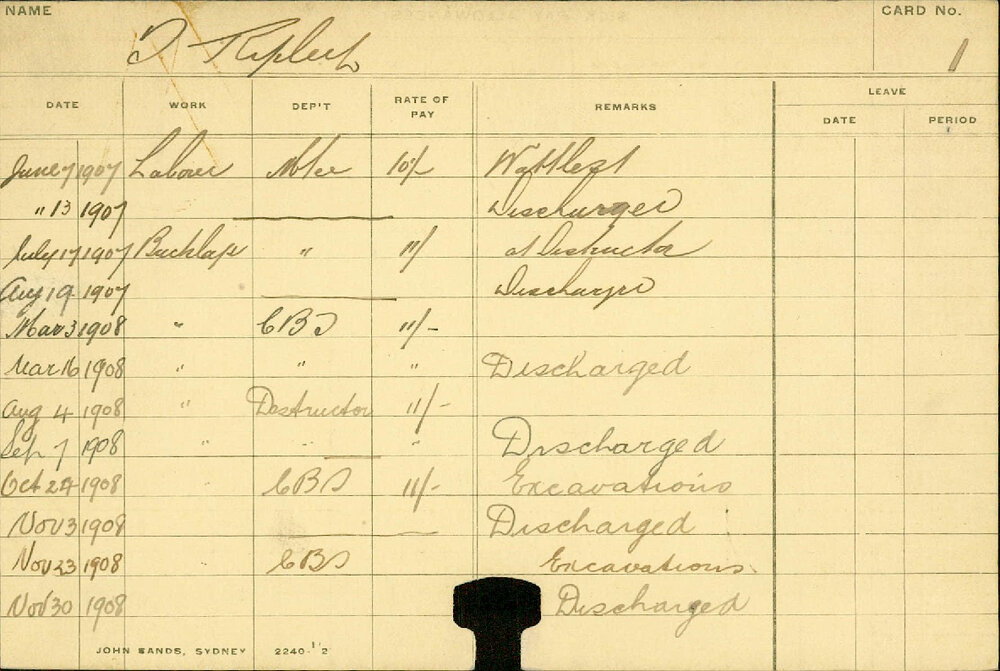 NAME CARD No.
1
DATE WORK DEP'T RATE OF PAY REMARKS LEAVE
DATE PERIOD
June 7 1907 Labourer 10/-
" 13 1907 Discharged
July 17 1907 " 11/ at Destructor
Aug 19 1907 Discharged
Mar 3 1908 " CBD 11/-
Mar 16 1908 " " " Discharged
Aug 4 1908 " Destructor 11/-
Sep 7 1908 " " " Discharged
Oct 24 1908 CBD 11/- Excavations
Nov 3 1908 Discharged
Nov 23 1908 CBD Excavations
Nov 30 1908 Discharged
JOHN SANDS, SYDNEY 2240-12